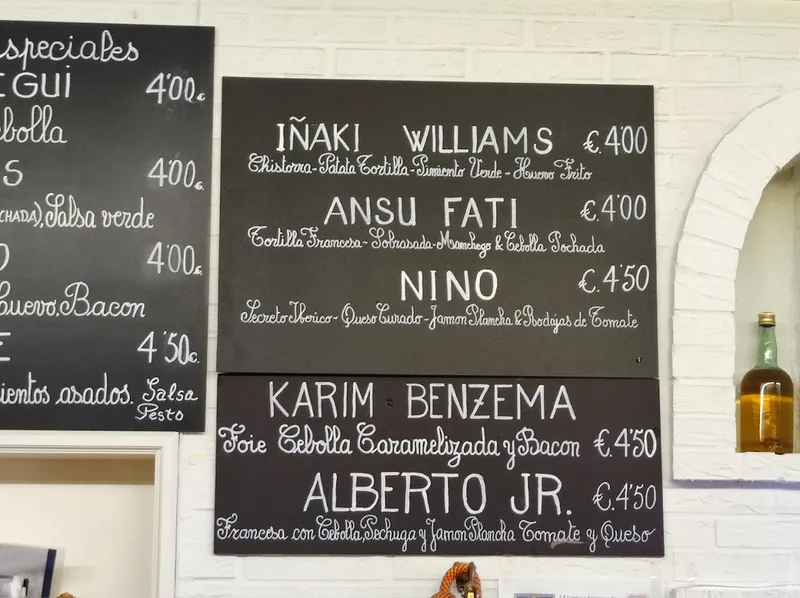 speciales
EGUI 4'00€
ebolla
S 4'00€
CHADA), Salsa verde
O 4'00€
huevo, Bacon
E 4'50€
ientos asados. Salsa
Pesto
IÑAKI WILLIAMS €.4'00
Chistorra-Patata Tortilla-Pimiento Verde-Huevo Frito
ANSU FATI €.4'00
Tortilla Francesa-Sobrasada-Mamchego & Cebolla Pochada
NINO €.4'50
Secreto Iberico-Queso Curado-Jamon Plancha & Rodajas de Tomate
KARIM BENZEMA
Foie Cebolla Caramelizada y Bacon €.4'50
ALBERTO JR. €.4'50
Francesa con Cebolla, Pechuga y Jamon Plancha Tomate y Queso